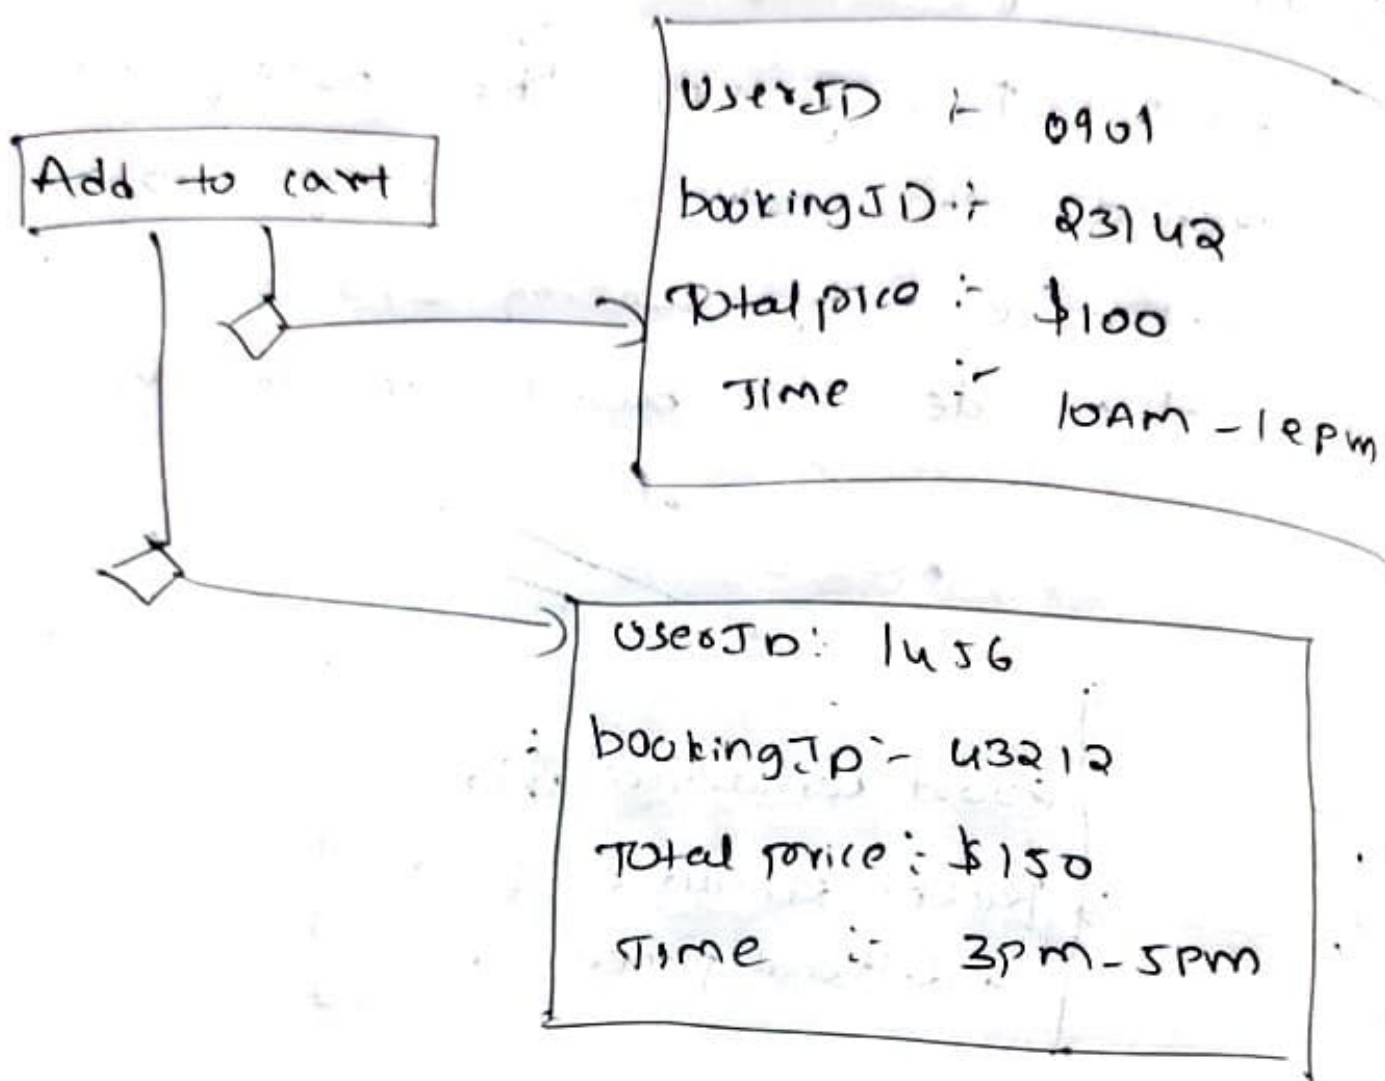 Add to cart
UserID :- 0901
bookingID :- 23142
Total price :- $100
Time :- 10AM - 12pm
UserID : 1456
bookingID :- 43212
Total price :- $150
Time :- 3pm - 5pm